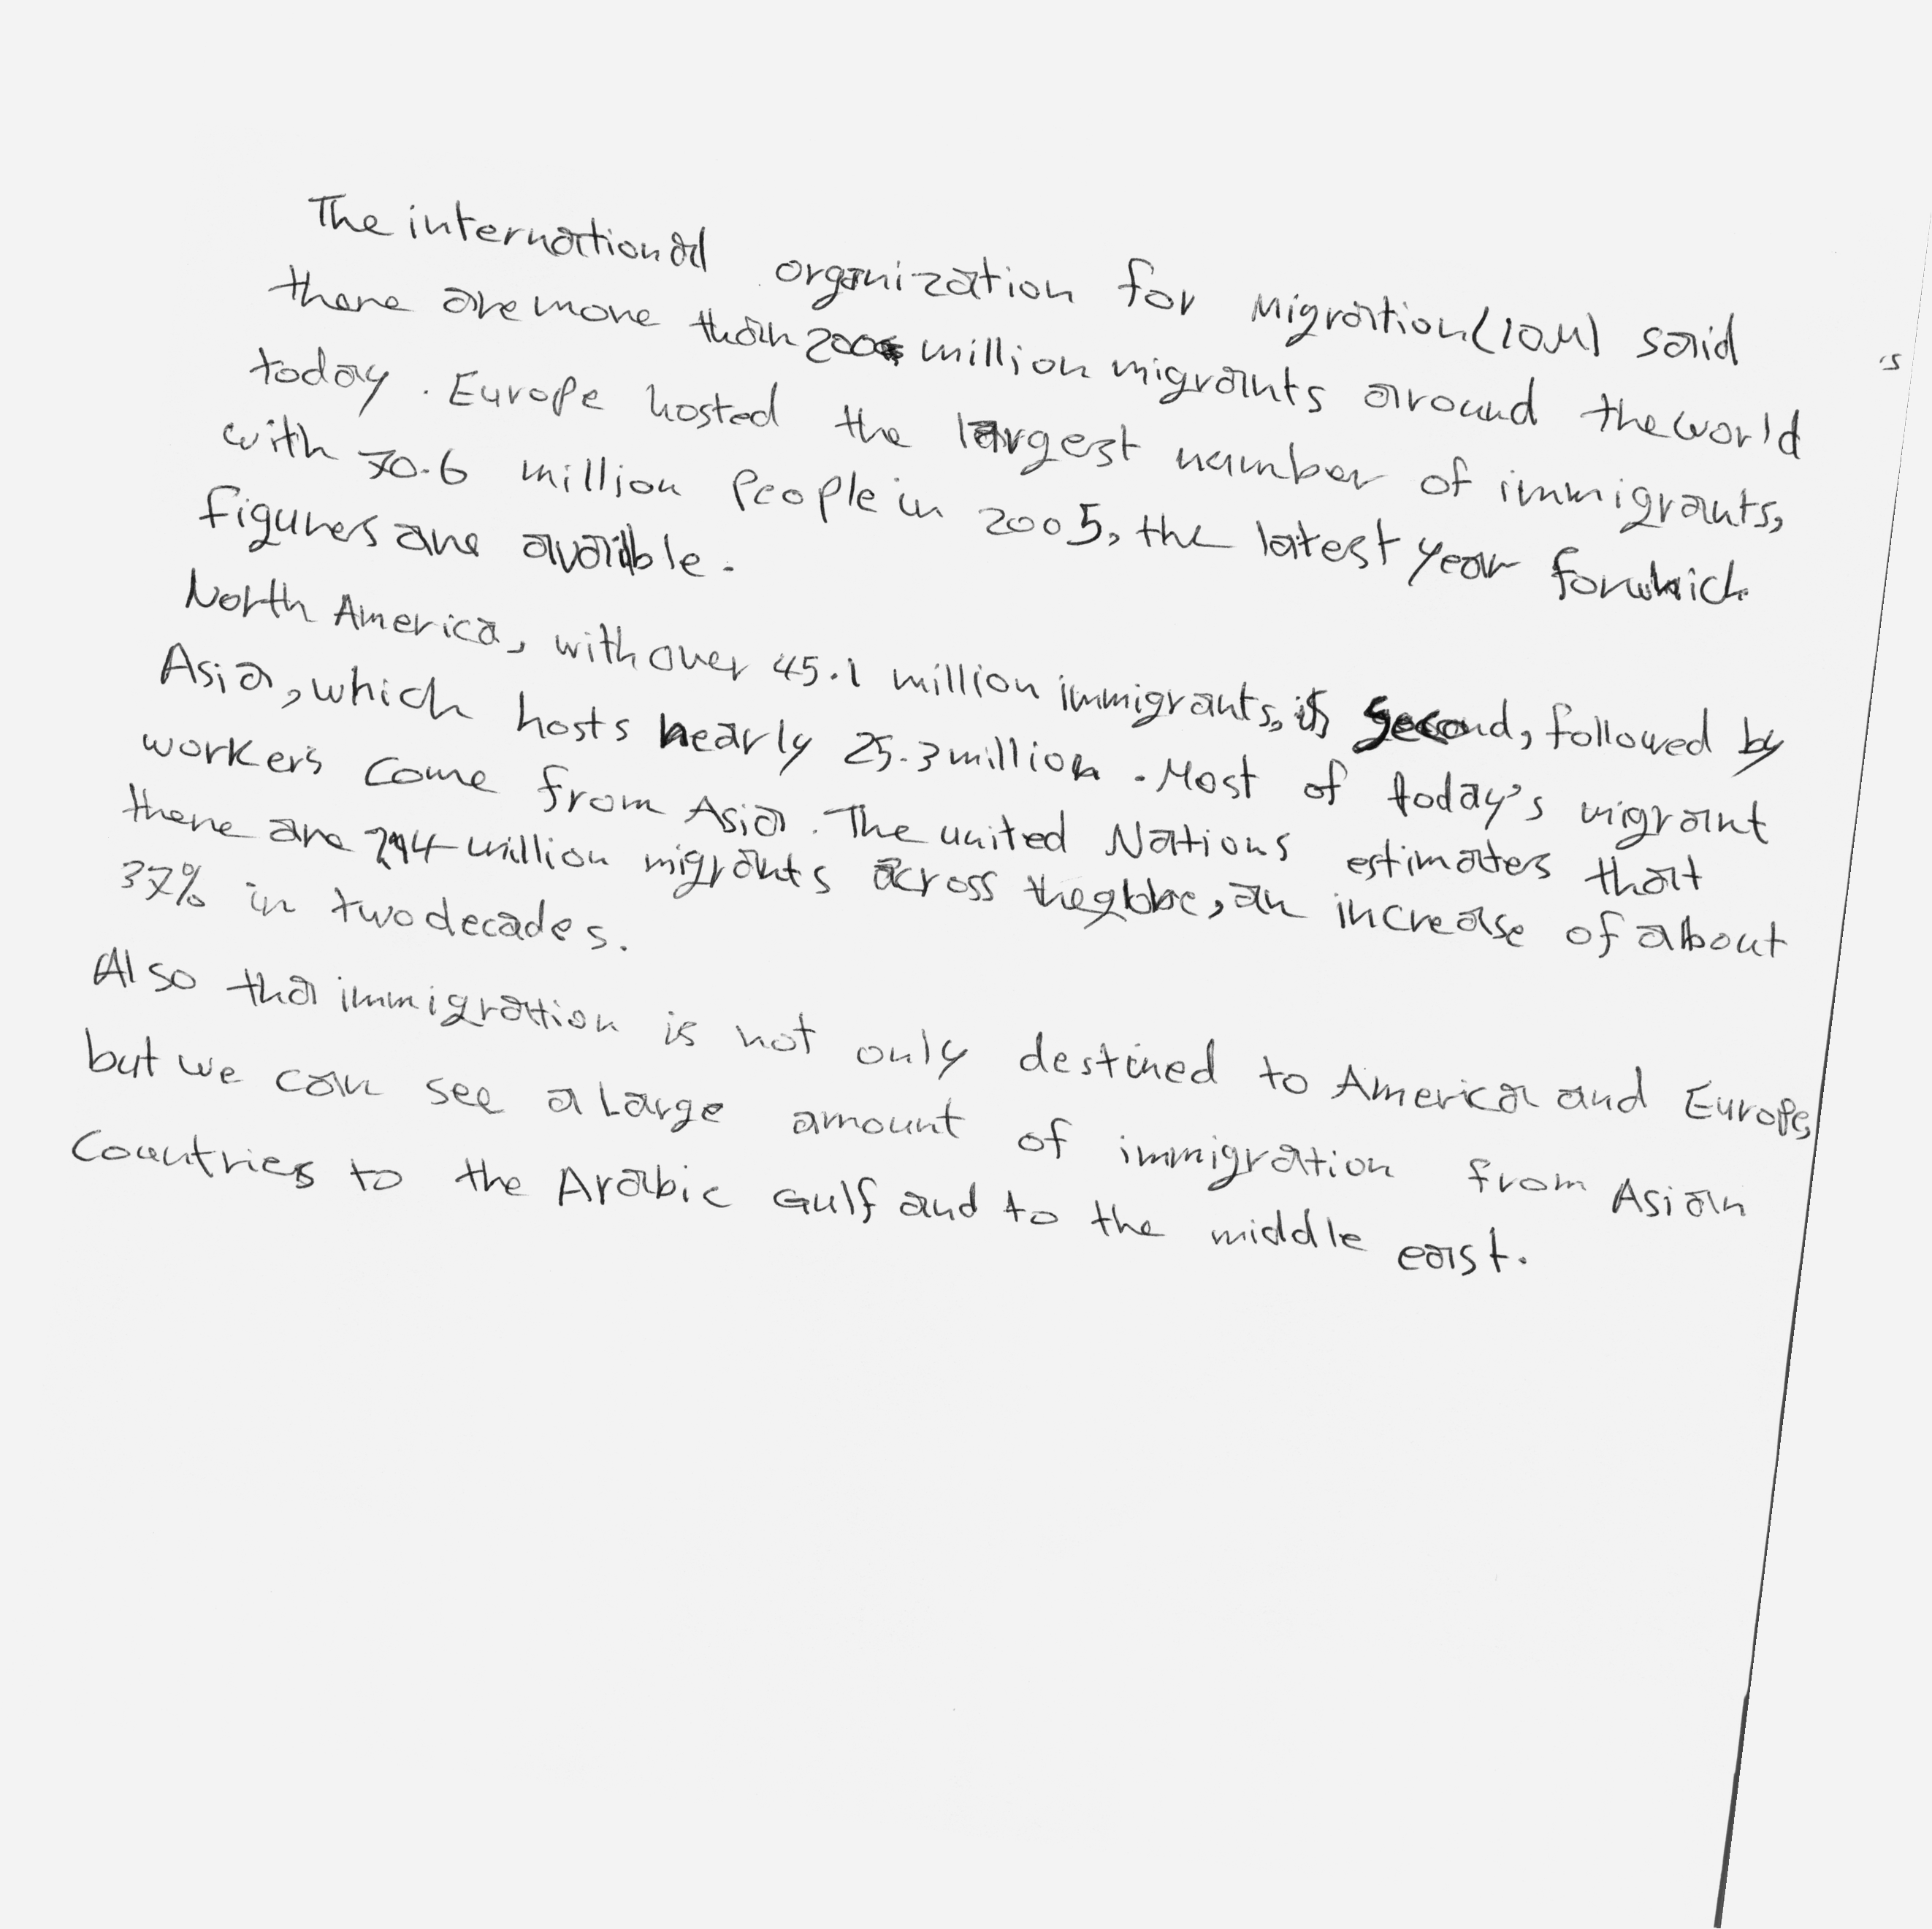 The international organization for Migration (IOM) said
there are more than 200 million migrants around the world
today. Europe hosted the largest number of immigrants,
with 70.6 million people in 2005, the latest year for which
figures are availble.
North America, with over 45.1 million immigrants, is second, followed by
Asia, which hosts nearly 25.3 million. Most of today's migrant
workers come from Asia. The united Nations estimates that
there are 214 million migrants across the globe, an increase of about
37% in two decades.
Also tha immigration is not only destined to America and Europe,
but we can see a large amount of immigration from Asian
Countries to the Arabic Gulf and to the middle east.